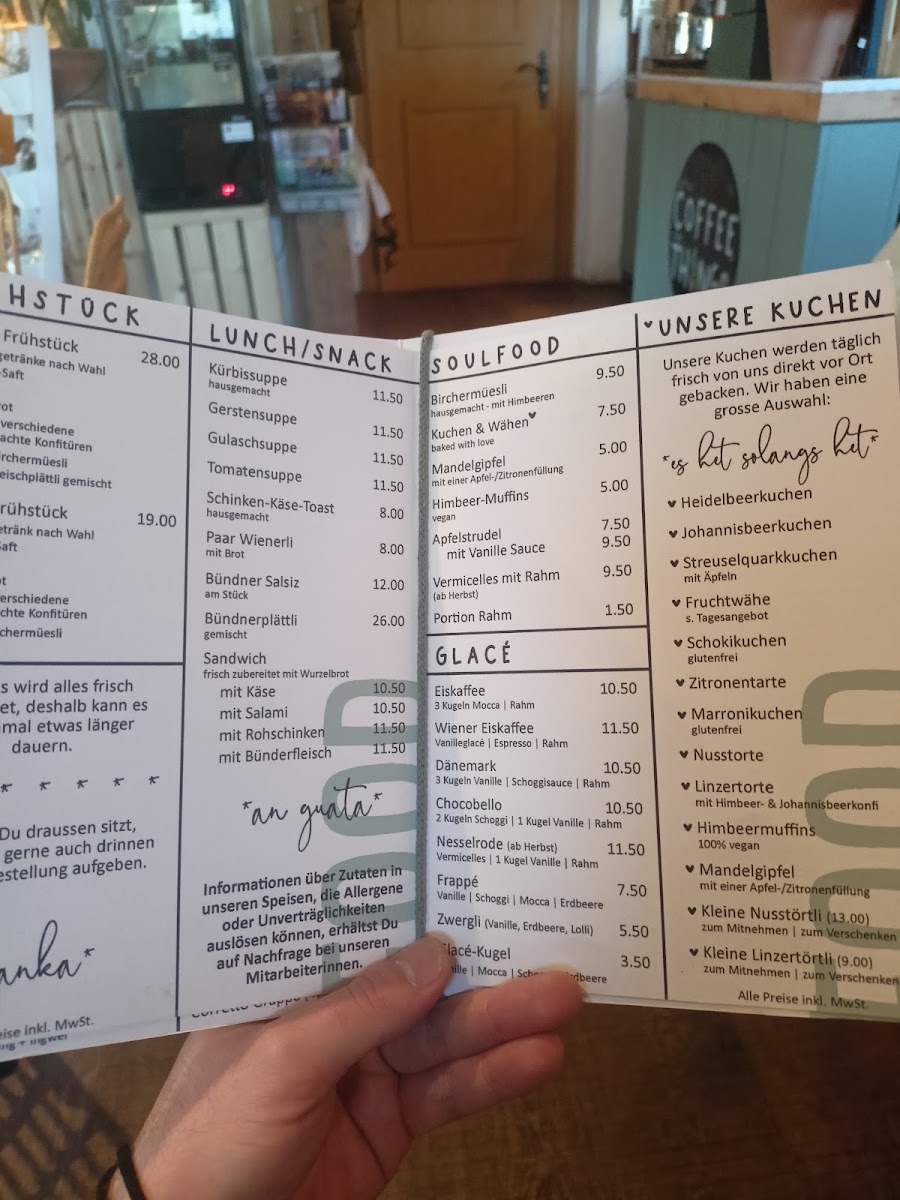 COFFEE
HSTÜCK
Frühstück 28.00
getränke nach Wahl
-Saft
rot
verschiedene
achte Konfitüren
irchermüesli
leischplättli gemischt
rühstück 19.00
etränk nach Wahl
aft
ot
erschiedene
chte Konfitüren
chermüesli
s wird alles frisch
et, deshalb kann es
mal etwas länger
dauern.
* * * * *
Du draussen sitzt,
gerne auch drinnen
estellung aufgeben.
anka*
eise inkl. MwSt.
LUNCH/SNACK
Kürbissuppe 11.50
hausgemacht
Gerstensuppe 11.50
Gulaschsuppe 11.50
Tomatensuppe 11.50
Schinken-Käse-Toast 8.00
hausgemacht
Paar Wienerli 8.00
mit Brot
Bündner Salsiz 12.00
am Stück
Bündnerplättli 26.00
gemischt
Sandwich
frisch zubereitet mit Wurzelbrot
mit Käse 10.50
mit Salami 10.50
mit Rohschinken 11.50
mit Bünderfleisch 11.50
*an guata*
Informationen über Zutaten in
unseren Speisen, die Allergene
oder Unverträglichkeiten
auslösen können, erhältst Du
auf Nachfrage bei unseren
Mitarbeiterinnen.
FOOD
SOULFOOD
Birchermüesli 9.50
hausgemacht - mit Himbeeren
Kuchen & Wähen 7.50
baked with love
Mandelgipfel 5.00
mit einer Apfel-/Zitronenfüllung
Himbeer-Muffins 5.00
vegan
Apfelstrudel 7.50
mit Vanille Sauce 9.50
Vermicelles mit Rahm 9.50
(ab Herbst)
Portion Rahm 1.50
GLACÉ
Eiskaffee 10.50
3 Kugeln Mocca | Rahm
Wiener Eiskaffee 11.50
Vanilleglacé | Espresso | Rahm
Dänemark 10.50
3 Kugeln Vanille | Schoggisauce | Rahm
Chocobello 10.50
2 Kugeln Schoggi | 1 Kugel Vanille | Rahm
Nesselrode (ab Herbst) 11.50
Vermicelles | 1 Kugel Vanille | Rahm
Frappé 7.50
Vanille | Schoggi | Mocca | Erdbeere
Zwergli (Vanille, Erdbeere, Lolli) 5.50
lacé-Kugel 3.50
nille | Mocca | Scho dbeere
♥UNSERE KUCHEN
Unsere Kuchen werden täglich
frisch von uns direkt vor Ort
gebacken. Wir haben eine
grosse Auswahl:
*es het solangs het*
♥ Heidelbeerkuchen
♥ Johannisbeerkuchen
♥ Streuselquarkkuchen
mit Äpfeln
♥ Fruchtwähe
s. Tagesangebot
♥ Schokikuchen
glutenfrei
♥ Zitronentarte
♥ Marronikuchen
glutenfrei
♥ Nusstorte
♥ Linzertorte
mit Himbeer- & Johannisbeerkonfi
♥ Himbeermuffins
100% vegan
♥ Mandelgipfel
mit einer Apfel-/Zitronenfüllung
♥ Kleine Nusstörtli (13.00)
zum Mitnehmen | zum Verschenken
♥ Kleine Linzertörtli (9.00)
zum Mitnehmen | zum Verschenken
Alle Preise inkl. MwSt.
FOOD